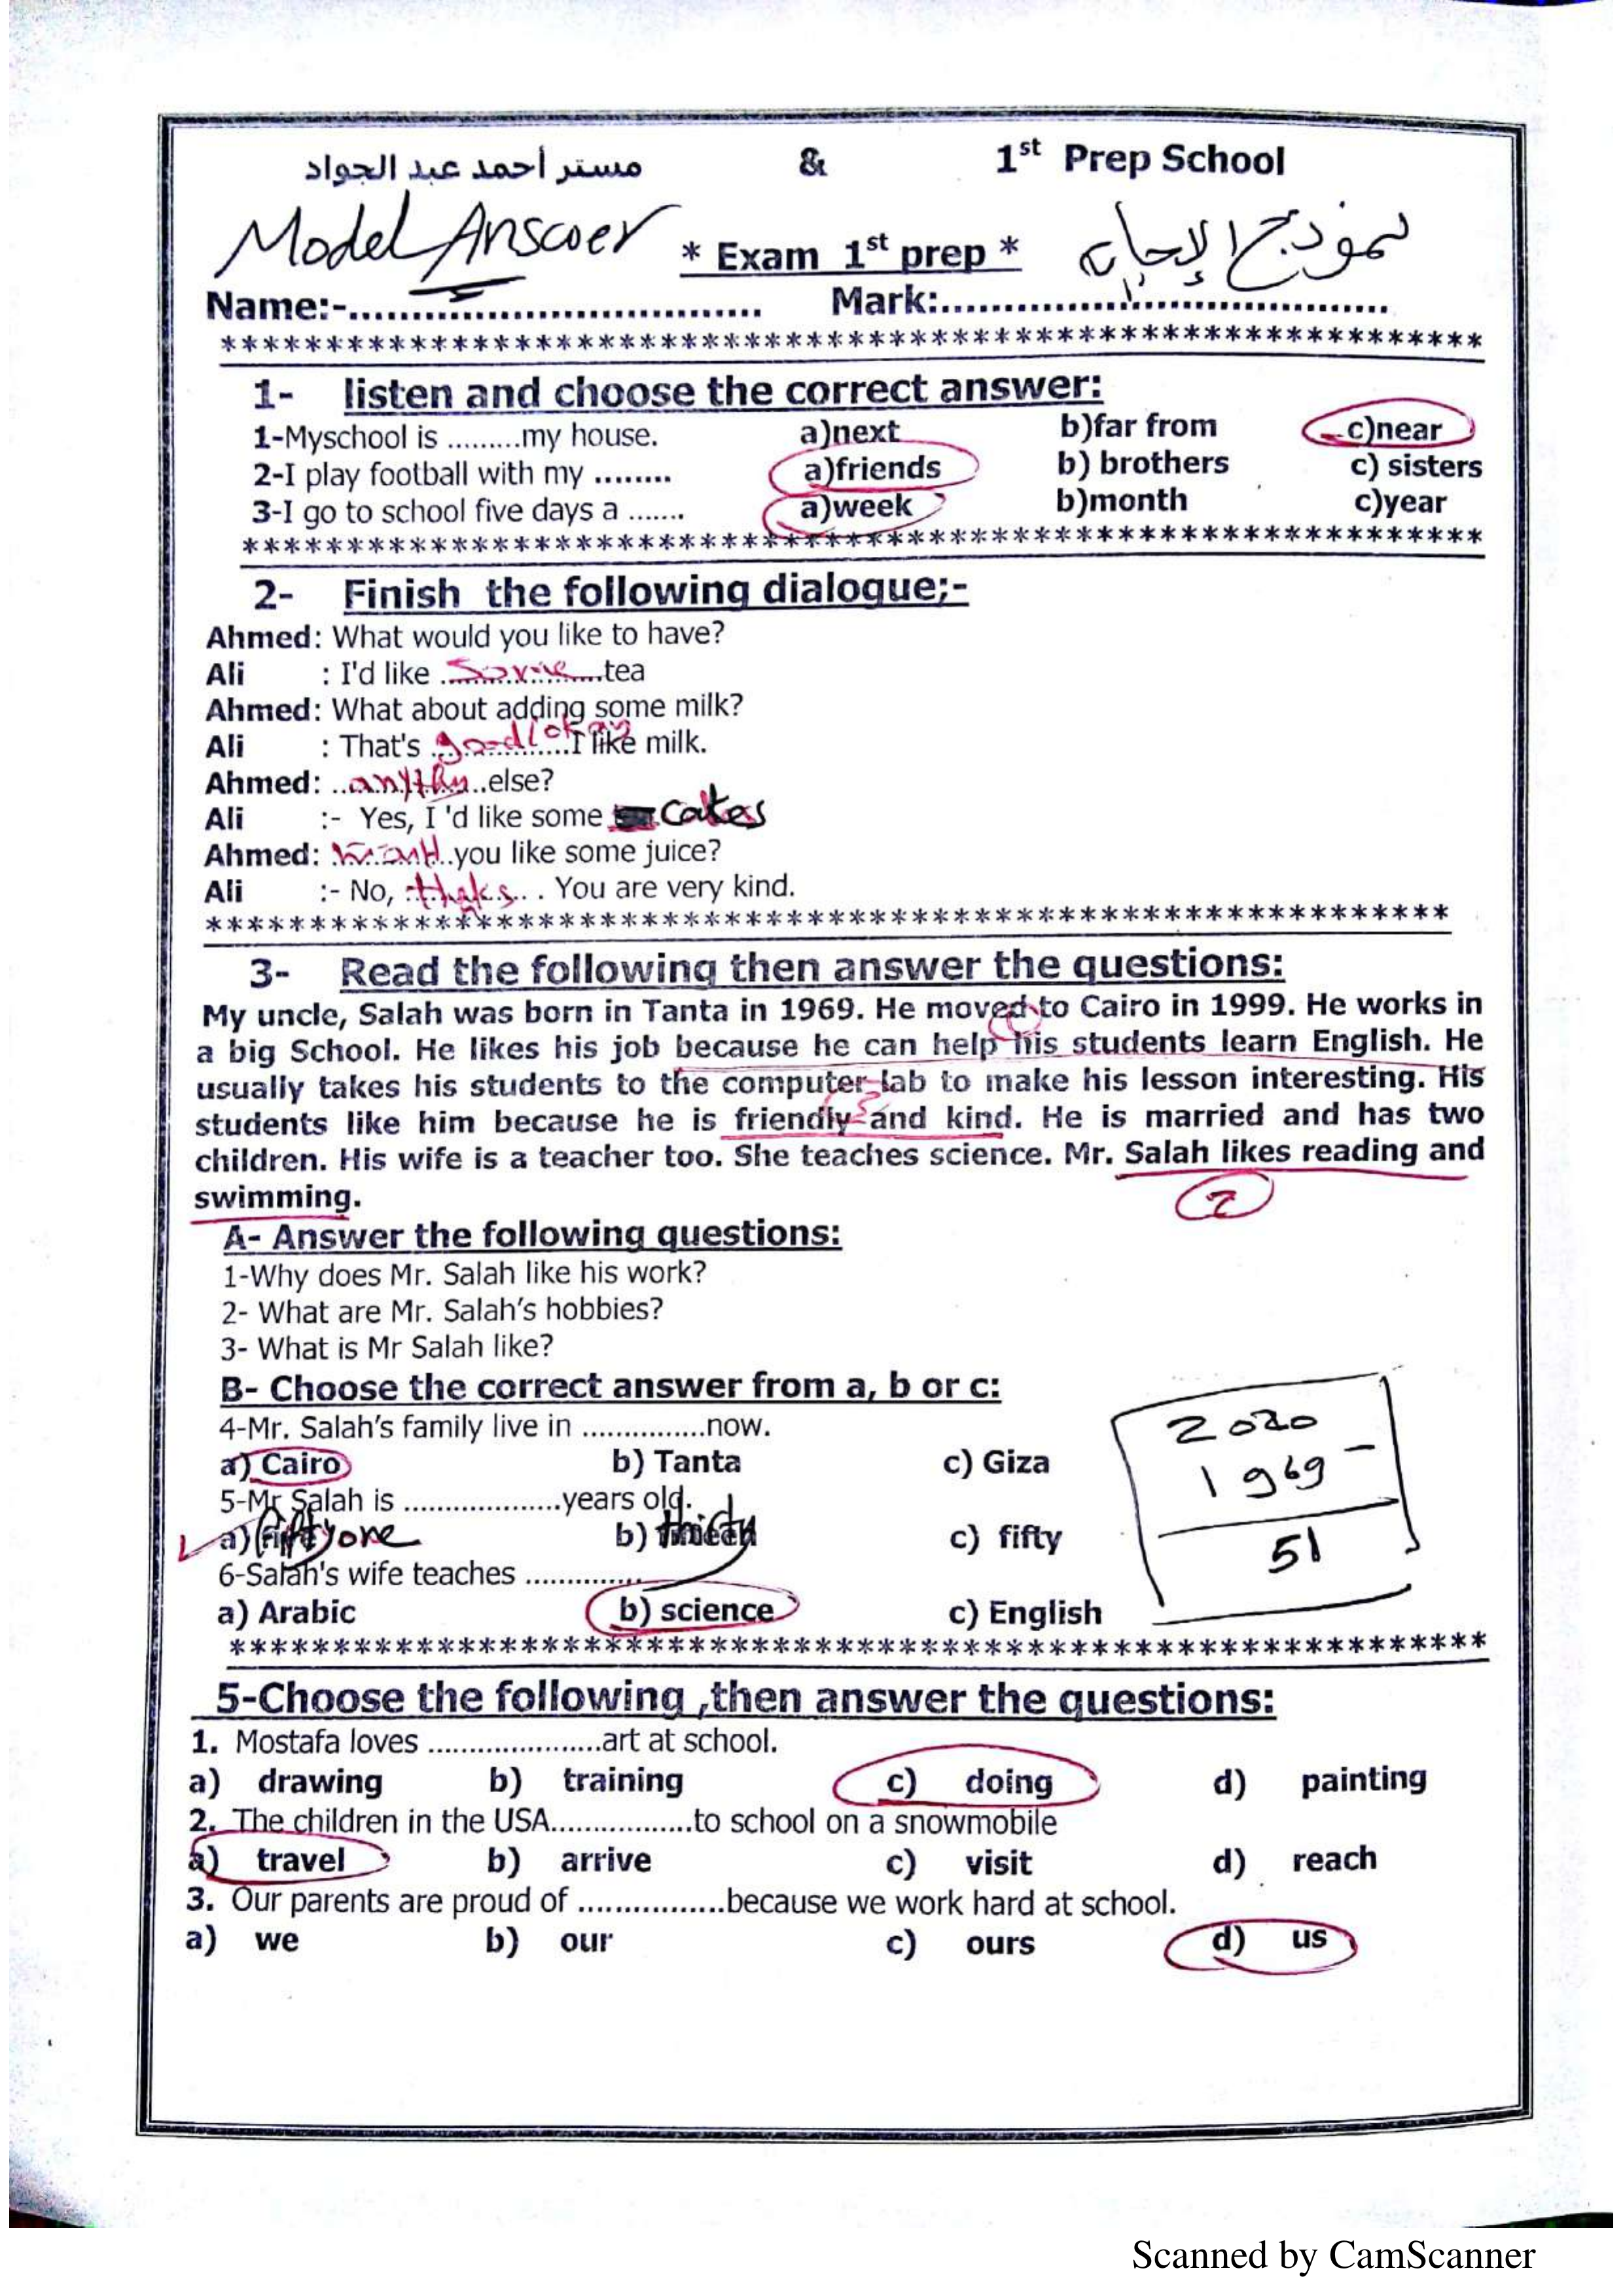 مستر أحمد عبد الجواد & 1st Prep School
Model Answer * Exam 1st prep * نموذج الإجابه
Name:-................................. Mark:....................................
************************************************************
1- listen and choose the correct answer:
1-Myschool is .........my house. a)next b)far from c)near
2-I play football with my ........ a)friends b) brothers c) sisters
3-I go to school five days a ....... a)week b)month c)year
************************************************************
2- Finish the following dialogue;-
Ahmed: What would you like to have?
Ali : I'd like ..Some..tea
Ahmed: What about adding some milk?
Ali : That's ..good/okay..I like milk.
Ahmed: ...else?
Ali :- Yes, I 'd like some cakes
Ahmed: ...you like some juice?
Ali :- No, ... . You are very kind.
************************************************************
3- Read the following then answer the questions:
My uncle, Salah was born in Tanta in 1969. He moved to Cairo in 1999. He works in
a big School. He likes his job because he can help his students learn English. He
usually takes his students to the computer lab to make his lesson interesting. His
students like him because he is friendly and kind. He is married and has two
children. His wife is a teacher too. She teaches science. Mr. Salah likes reading and
swimming. 2
A- Answer the following questions:
1-Why does Mr. Salah like his work?
2- What are Mr. Salah's hobbies?
3- What is Mr Salah like?
B- Choose the correct answer from a, b or c:
4-Mr. Salah's family live in ...............now.
a) Cairo b) Tanta c) Giza
5-Mr Salah is ...................years old.
a) fifty one b) thirty c) fifty
2020
1969 -
51
6-Salah's wife teaches ..............
a) Arabic b) science c) English
************************************************************
5-Choose the following ,then answer the questions:
1. Mostafa loves .....................art at school.
a) drawing b) training c) doing d) painting
2. The children in the USA.................to school on a snowmobile
a) travel b) arrive c) visit d) reach
3. Our parents are proud of .................because we work hard at school.
a) we b) our c) ours d) us
Scanned by CamScanner